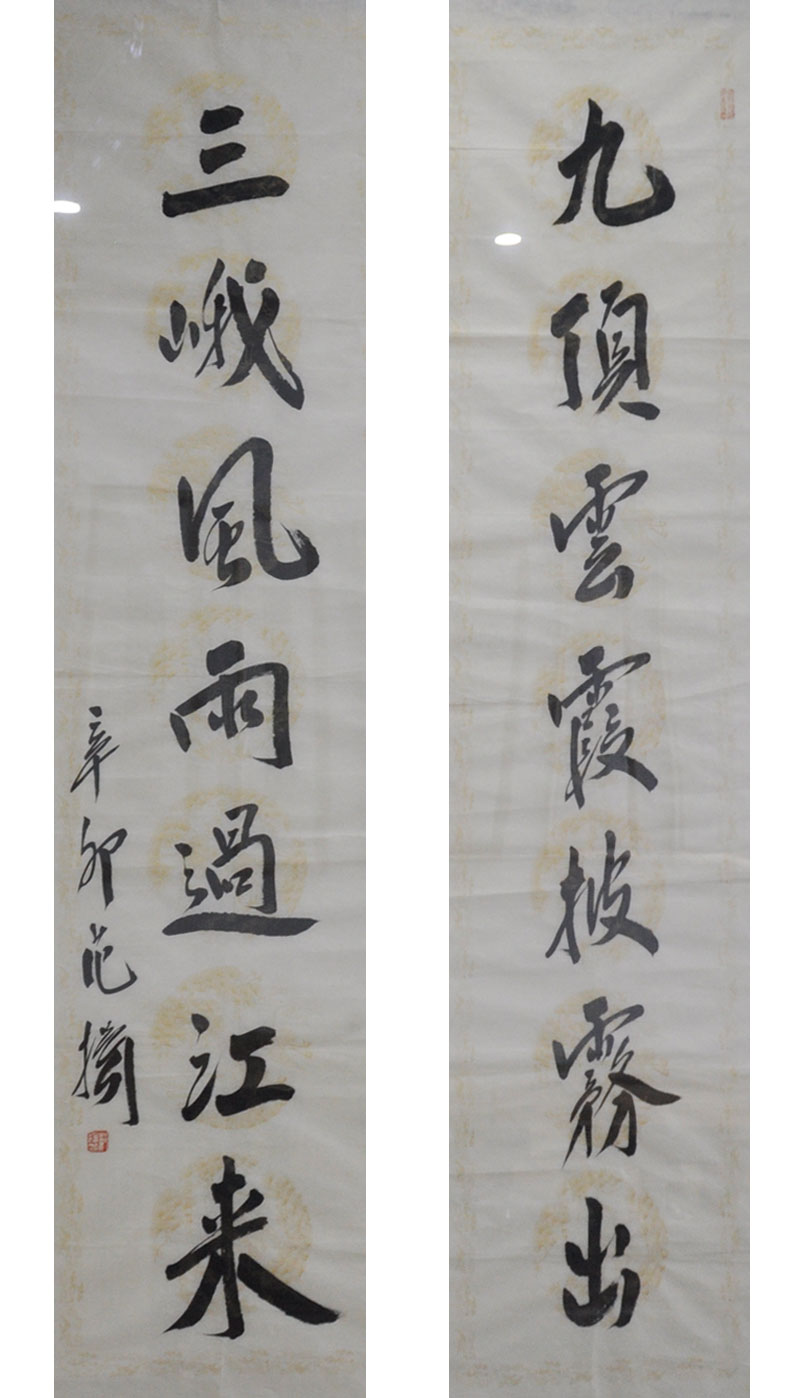 九頂雲霞披霧出
三峨風雨過江来
辛卯